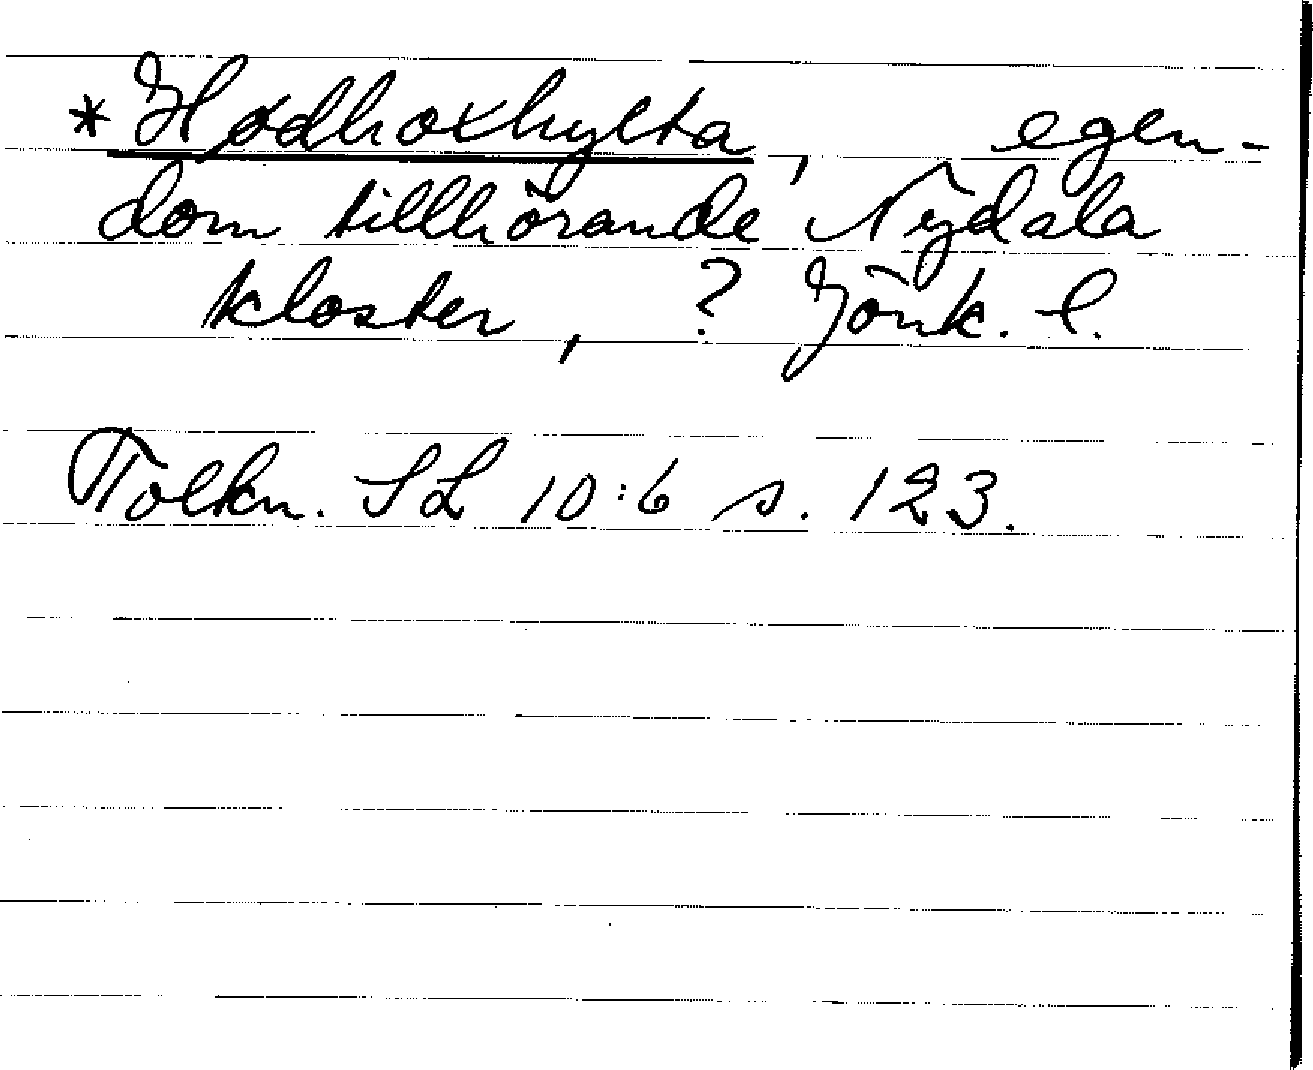 *Hødhoxhylta, egen-
dom tillhörande Nydala
kloster, ? Jönk. l.
Tolkn. SL 10:6 s. 123.